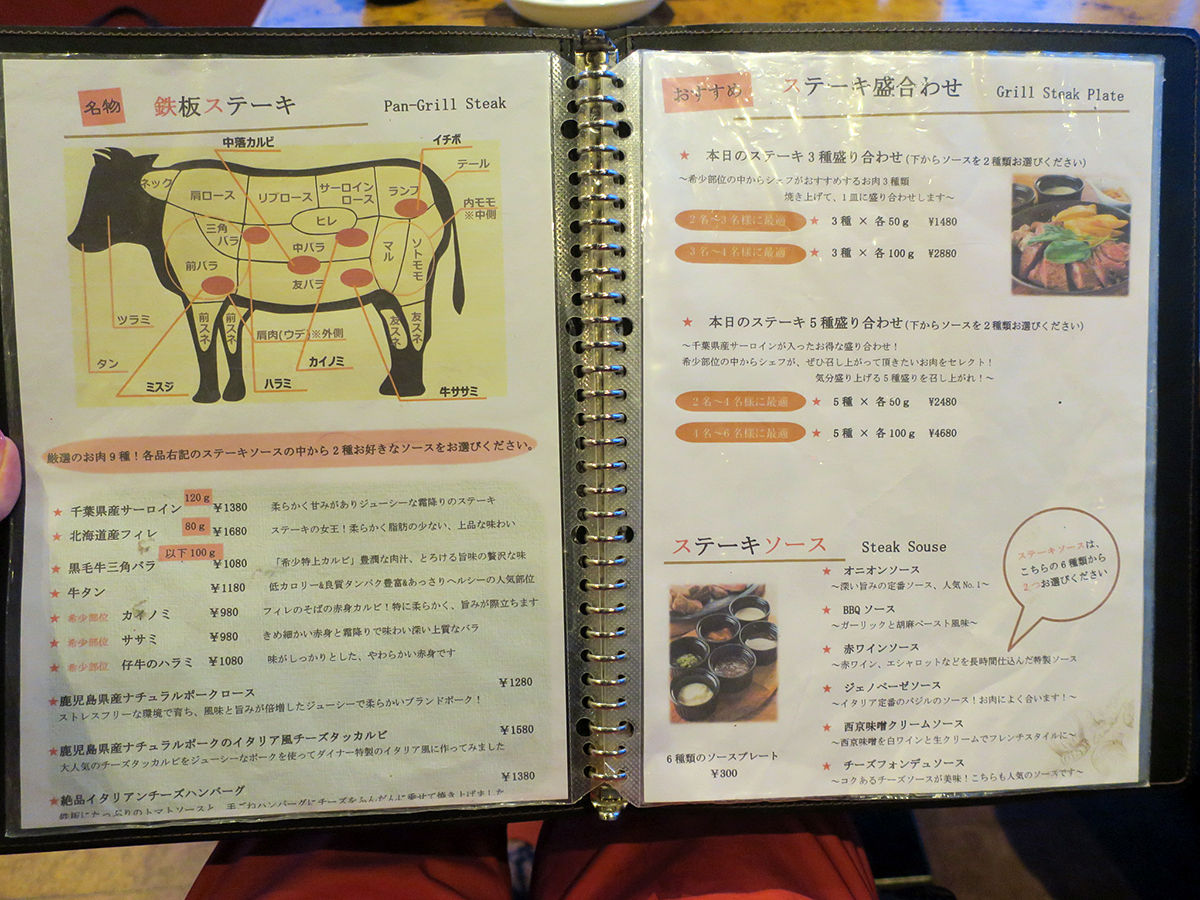 名物 鉄板ステーキ Pan-Grill Steak
中落カルビ
イチボ
テール
ネック
肩ロース
リブロース
サーロインロース
ランプ
内モモ
※中側
ヒレ
三角バラ
中バラ
マル
ソトモモ
前バラ
友バラ
前スネ
前スネ
友スネ
友スネ
ツラミ
肩肉(ウデ)※外側
タン
カイノミ
ミスジ
ハラミ
牛ササミ
厳選のお肉9種!各品右記のステーキソースの中から2種お好きなソースをお選びください。
★ 千葉県産サーロイン 120g ¥1380 柔らかく甘みがありジューシーな霜降りのステーキ
★ 北海道産フィレ 80g ¥1680 ステーキの女王!柔らかく脂肪の少ない、上品な味わい
以下100g
★ 黒毛牛三角バラ ¥1080 「希少特上カルビ」豊潤な肉汁、とろける旨味の贅沢な味
★ 牛タン ¥1180 低カロリー&良質タンパク豊富&あっさりヘルシーの人気部位
★ 希少部位 カイノミ ¥980 フィレのそばの赤身カルビ!特に柔らかく、旨みが際立ちます
★ 希少部位 ササミ ¥980 きめ細かい赤身と霜降りで味わい深い上質なバラ
★ 希少部位 仔牛のハラミ ¥1080 味がしっかりとした、やわらかい赤身です
★鹿児島県産ナチュラルポークロース ¥1280
ストレスフリーな環境で育ち、風味と旨みが倍増したジューシーで柔らかいブランドポーク!
★鹿児島県産ナチュラルポークのイタリア風チーズタッカルビ ¥1580
大人気のチーズタッカルビをジューシーなポークを使ってダイナー特製のイタリア風に作ってみました
★絶品イタリアンチーズハンバーグ ¥1380
鉄板にたっぷりのトマトソースと、手ごねハンバーグにチーズをふんだんに乗せて焼き上げました
おすすめ ステーキ盛合わせ Grill Steak Plate
★ 本日のステーキ3種盛り合わせ(下からソースを2種類お選びください)
~希少部位の中からシェフがおすすめするお肉3種類
焼き上げて、1皿に盛り合わせします~
2名~3名様に最適 ★ 3種 × 各50g ¥1480
3名~4名様に最適 ★ 3種 × 各100g ¥2880
★ 本日のステーキ5種盛り合わせ(下からソースを2種類お選びください)
~千葉県産サーロインが入ったお得な盛り合わせ!
希少部位の中からシェフが、ぜひ召し上がって頂きたいお肉をセレクト!
気分盛り上げる5種盛りを召し上がれ!~
2名~4名様に最適 ★ 5種 × 各50g ¥2480
4名~6名様に最適 ★ 5種 × 各100g ¥4680
ステーキソース Steak Souse
ステーキソースは、
こちらの6種類から
2つお選びください
★ オニオンソース
~深い旨みの定番ソース、人気No.1~
★ BBQソース
~ガーリックと胡麻ペースト風味~
★ 赤ワインソース
~赤ワイン、エシャロットなどを長時間仕込んだ特製ソース
★ ジェノベーゼソース
~イタリア定番のバジルのソース!お肉によく合います!~
★ 西京味噌クリームソース
~西京味噌を白ワインと生クリームでフレンチスタイルに~
★ チーズフォンデュソース
~コクあるチーズソースが美味!こちらも人気のソースです~
6種類のソースプレート
¥300